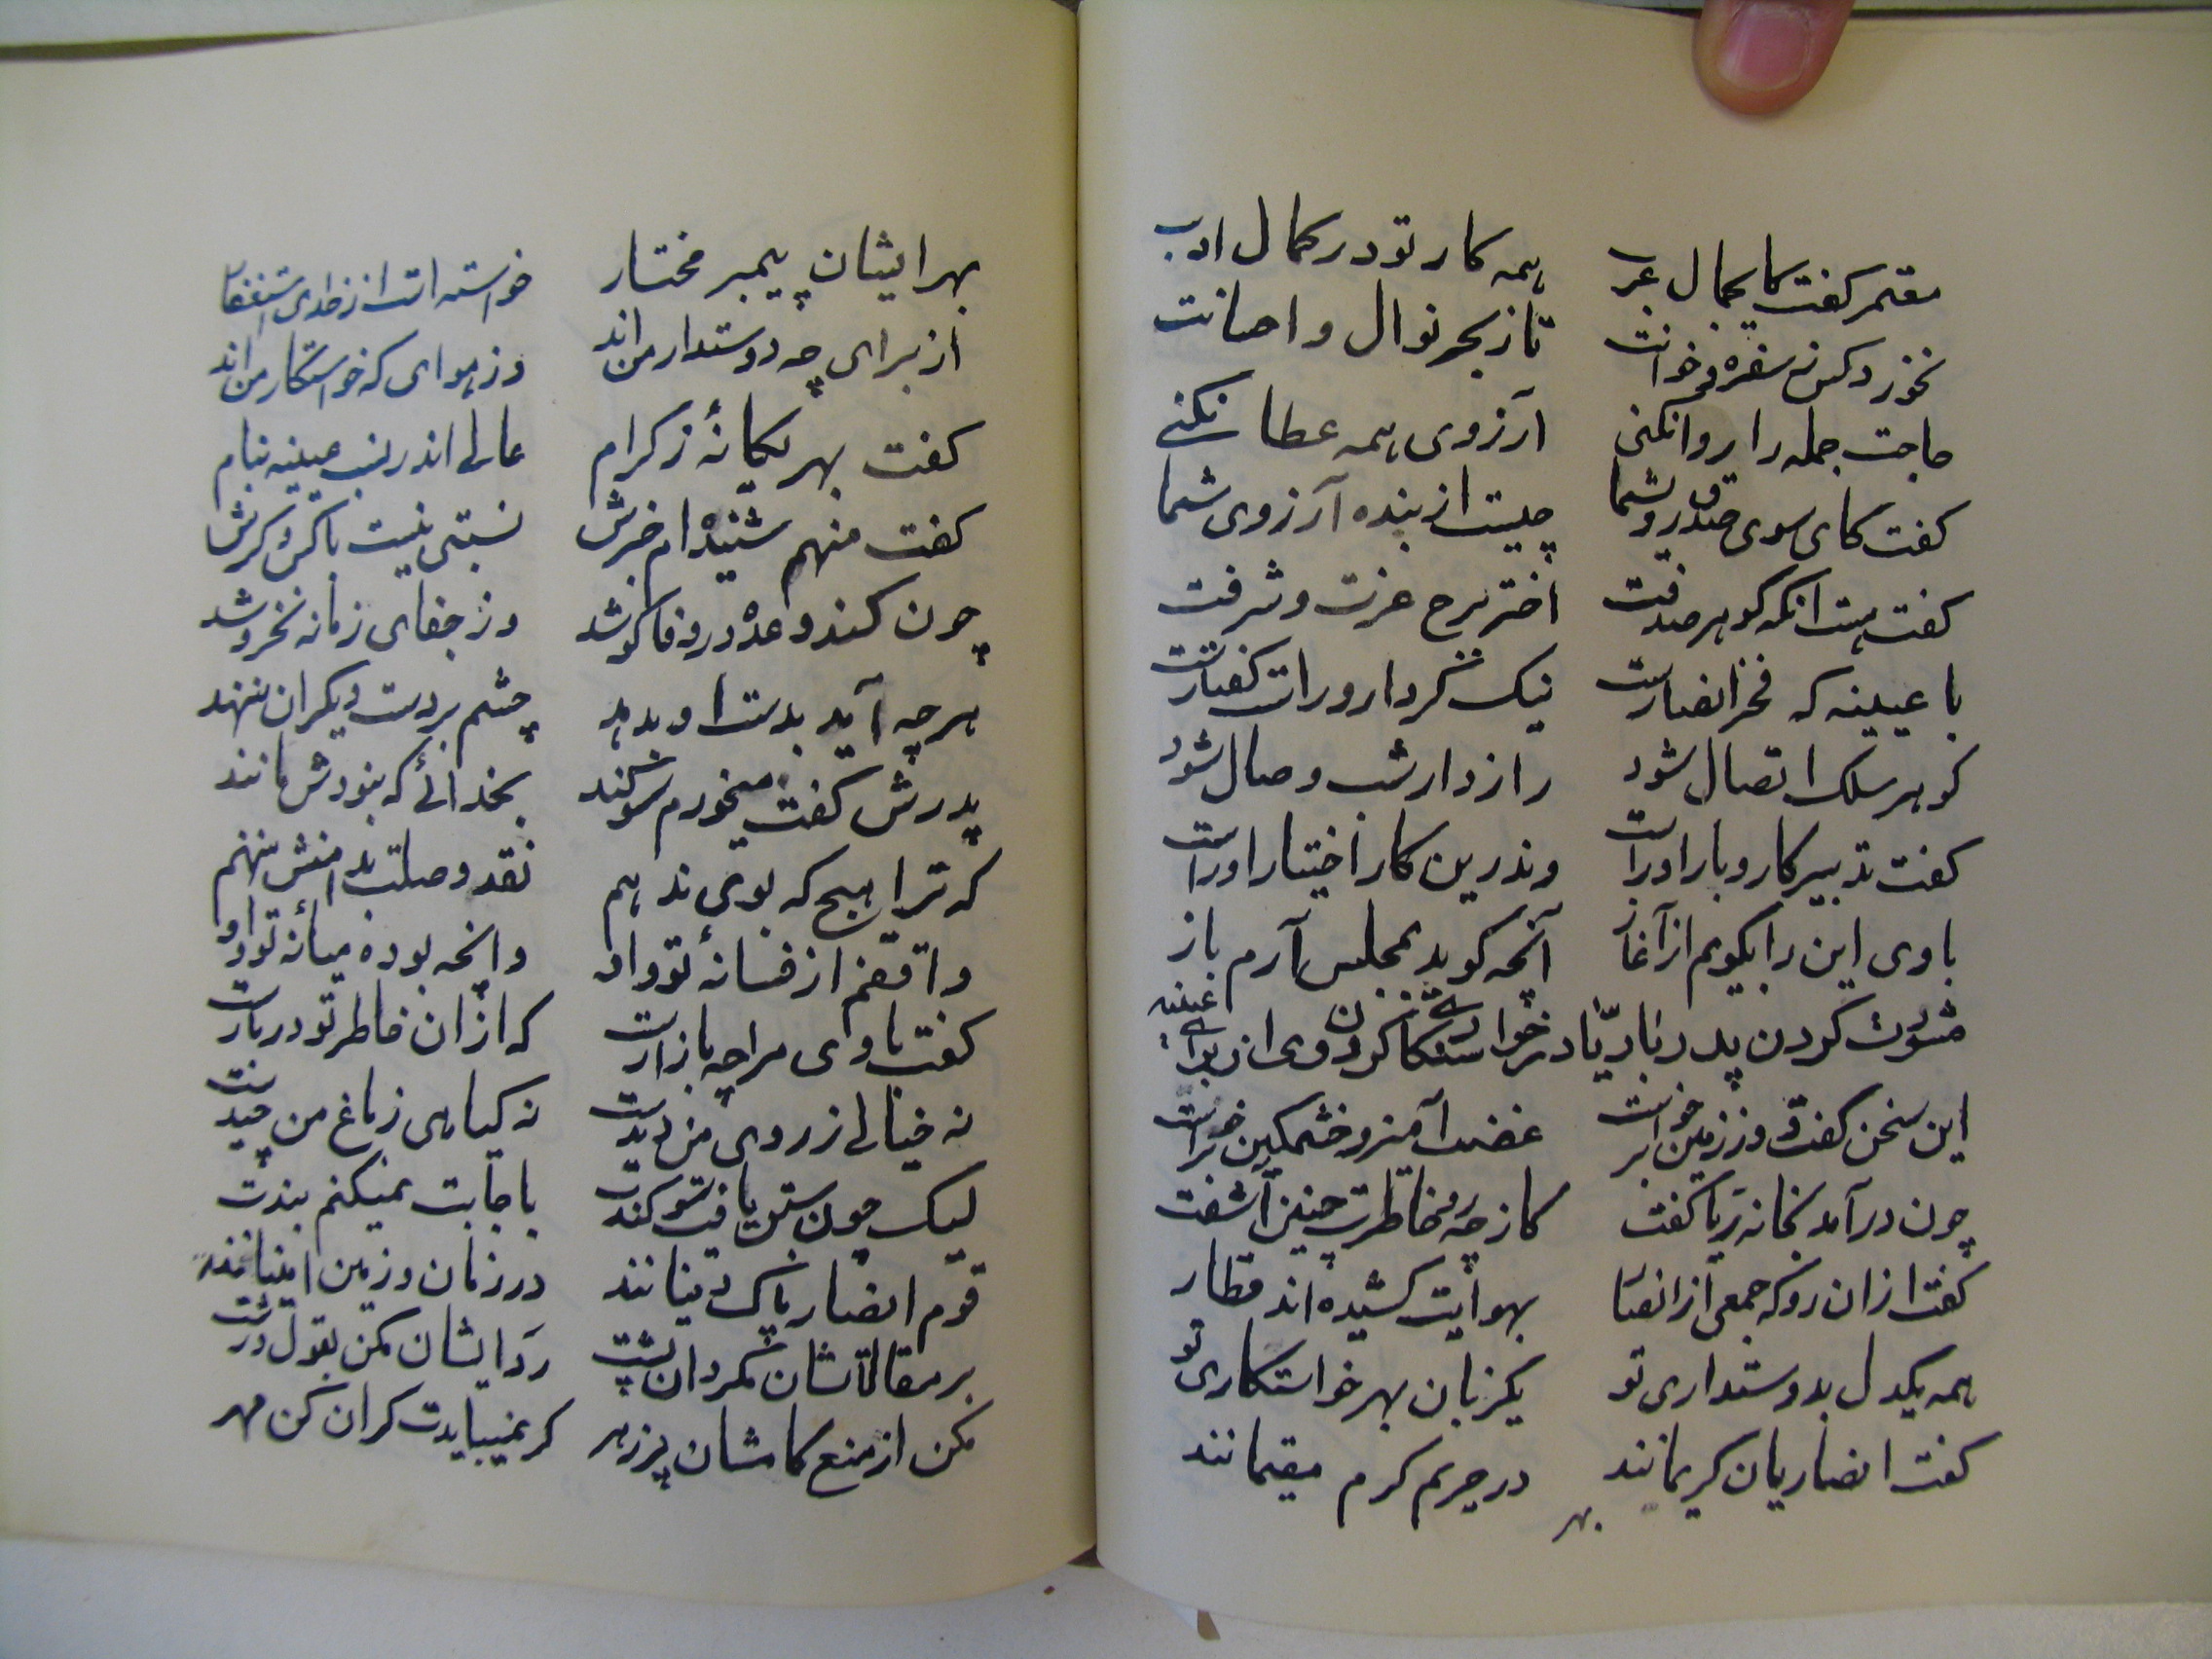 معتمر گفت کای جمال عرب    همه کار تو در کمال ادب
نخورد کس نه سفره و خوانت    تا ز بحر نوال و احسانت
حاجت جمله را روا نکنی    آرزوی همه عطا نکنے
گفت کای سوی صدق روی شما    چیست از بنده آرزوی شما
گفت هست آنکه گوهر صدفت    اختر برج عزت و شرفت
با عیینه که فخر انصارست    نیک کردار و راست گفتارست
گوهر سلک اتصال شود    رازدار شب وصال شود
گفت تدبیر کار و بار اوراست    وندرین کار اختیار اوراست
باوی این را بگویم از آغاز    آنچه گوید بمجلس آرم باز
مشورت کردن پدر با ریّا در خواستگاری کردن وی از برای عیینه
این سخن گفت و ز زمین برخواست    غضب آمیز و خشمگین برخاست
چون در آمد بخانه ریّا گفت    کز چه رو خاطرت چنین آشفت
گفت از ان رو که جمعی از انصار    بهوایت کشیده اند قطار
همه یکدل بدوستداری تو    یکزبان بهر خواستگاری تو
گفت انصاریان کریمانند    در حریم کرم مقیمانند
بهر
بهر ایشان پیمبر مختار    خواسته است از خدای استغفار
از برای چه دوستدار من اند    وز هوای که خواستگار من اند
گفت بهر یگانهٔ ز کرام    عالی اندر نسب عیینه بنام
گفت منهم شنیده ام خبرش    نسبتی نیست با کس و گرش
چون کند وعده در وفا کوشد    وز جفای زمانه نخروشد
هرچه آید بدست او بدهد    چشم بر دست دیگران ننهد
پدرش گفت میخورم سوگند    بخدائے که نبودش مانند
که ترا هیچگه بوی ندهم    نقد وصلت بدامنش ننهم
واقفم از فسانهٔ تو و او    وانچه بوده میانهٔ تو و او
گفت با وی مرا چه بازارست    که از ان خاطر تو در بارست
نه خیالی ز روی من دیدست    نه گیاهی ز باغ من چیدست
لیک چون سبق یافت سوگندت    باجابت نمیکنم بندت
قوم انصار پاک دینانند    در زمان و زمین امینانند
بر مقالات شان مگردان پشت    رد ایشان مکن بقول درشت
مکن از منع کامشان پر زهر    گر نمیبایدت گران کن مهر